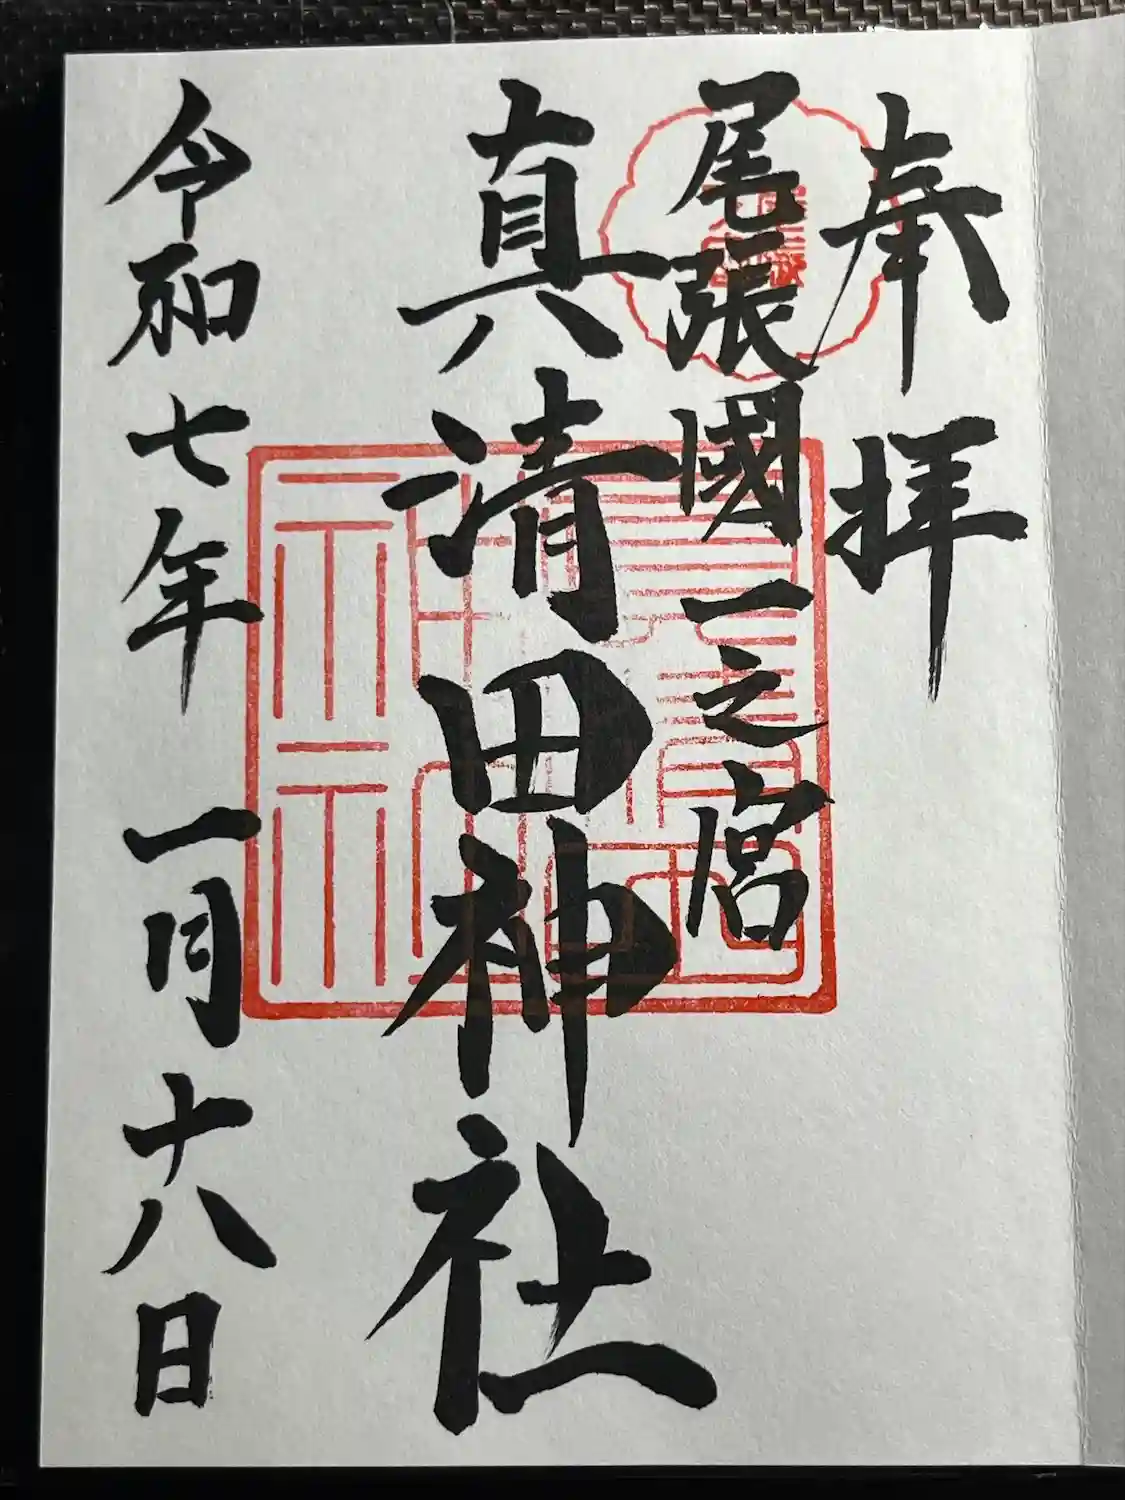 奉拝
尾張國一之宮
真清田神社
令和七年 一月十八日